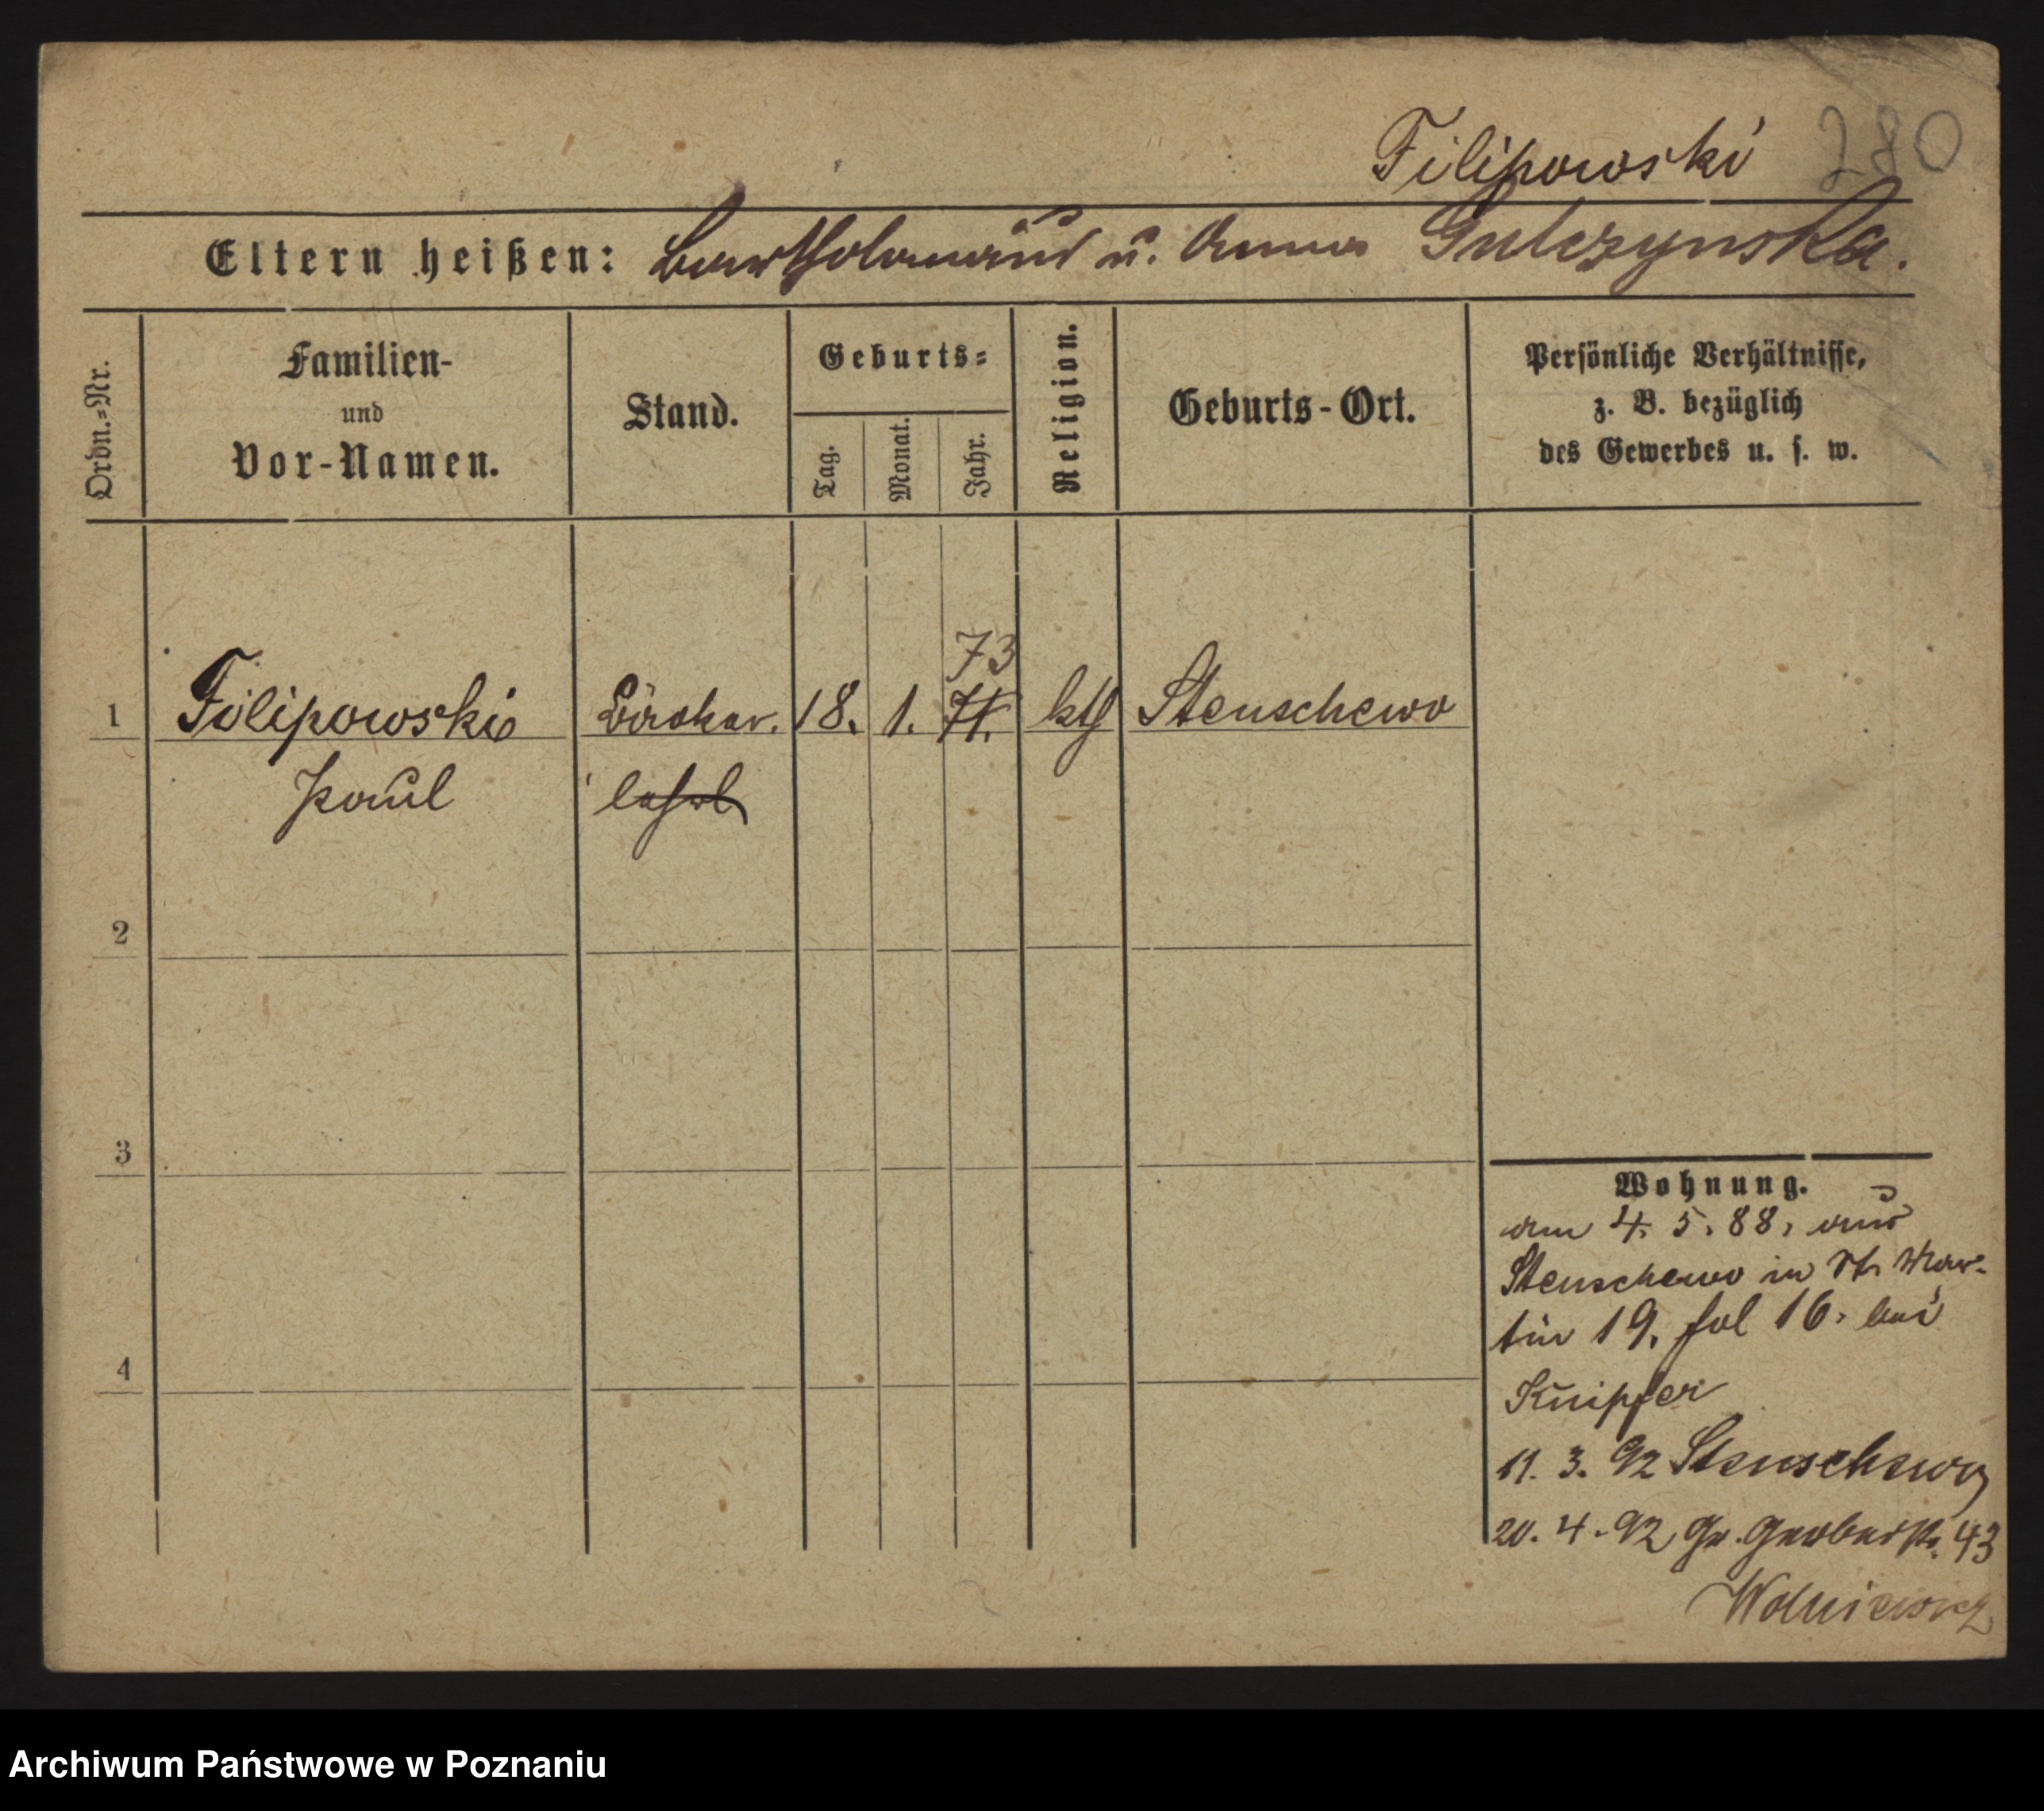 Filipowski 280
Eltern heißen: Bartholomäus u. Anna Gulczynska.
Ordn.=Nr.
Familien-
und
Vor-Namen.
Stand.
Geburts=
Tag.
Monat.
Jahr.
Religion.
Geburts-Ort.
Persönliche Verhältnisse,
z. B. bezüglich
des Gewerbes u. s. w.
73
1 Filipowski 18. 1. 71. kth Stenschewo
Paul lehrl
2
3
4
Wohnung.
am 4. 5. 88, aus
Stenschewo in St. Mar-
tin 19. fol 16. bei
Knipfer
11. 3. 92 Stenschewo
20. 4. 92 Gr. Gerberstr. 43
Archiwum Państwowe w Poznaniu